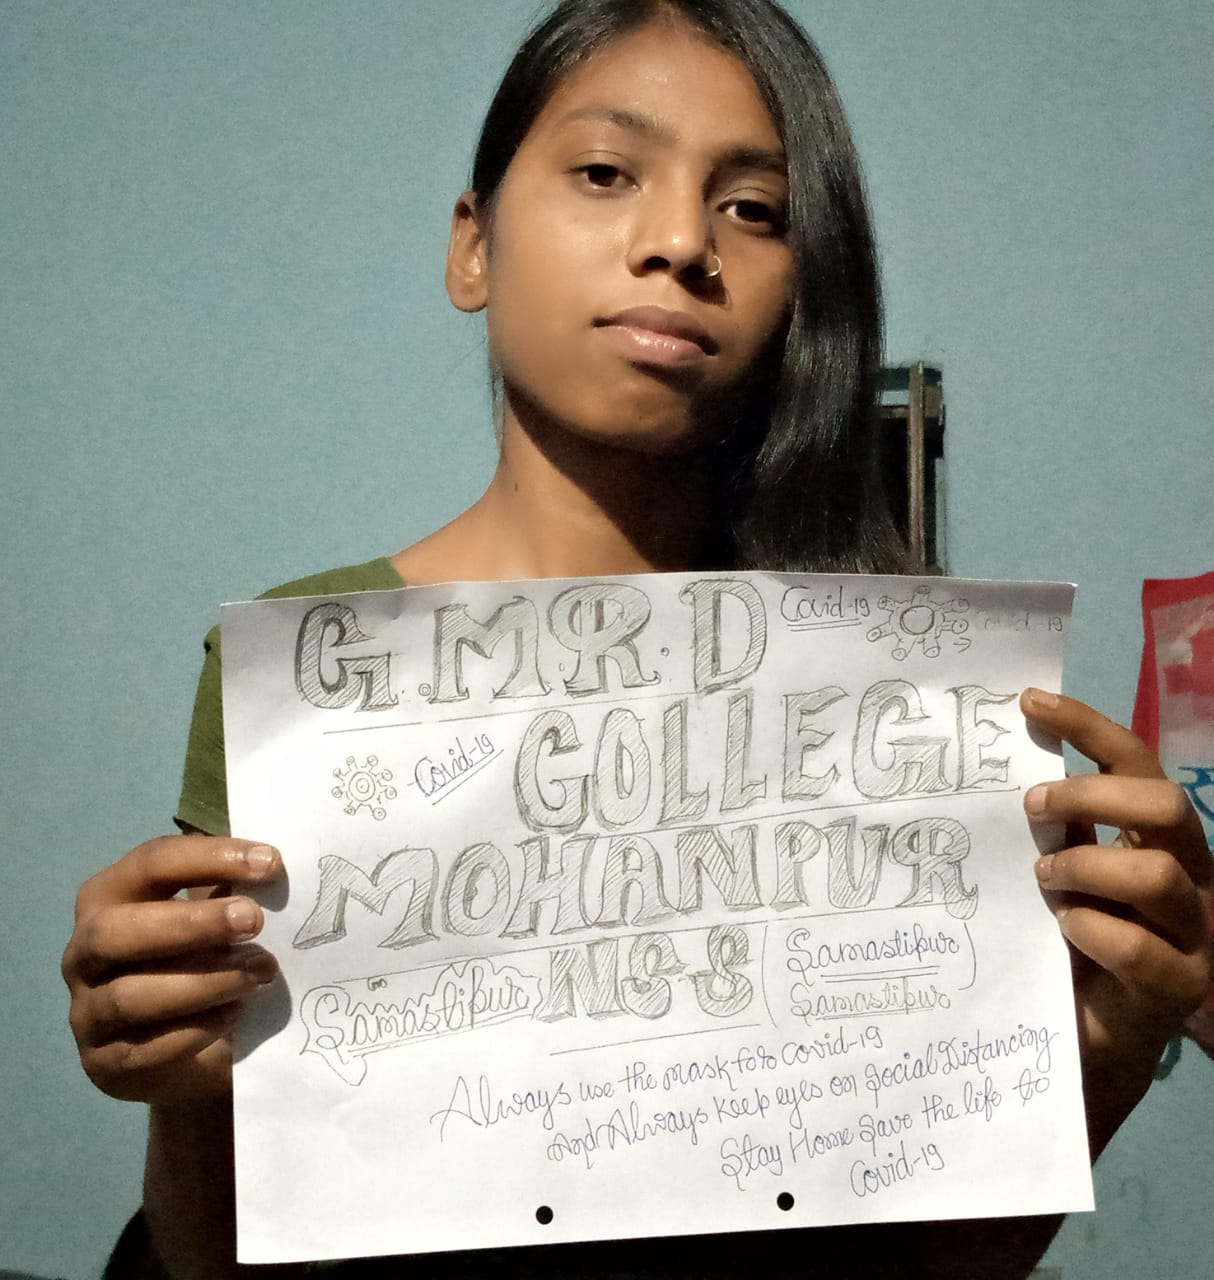 G.M.R.D Covid-19
COLLEGE
Covid-19
MOHANPUR
Samastipur NSS (Samastipur)
Samastipur
Always use the mask for Covid-19
and Always keep eyes on Social Distancing
Stay Home Save the life to
Covid-19